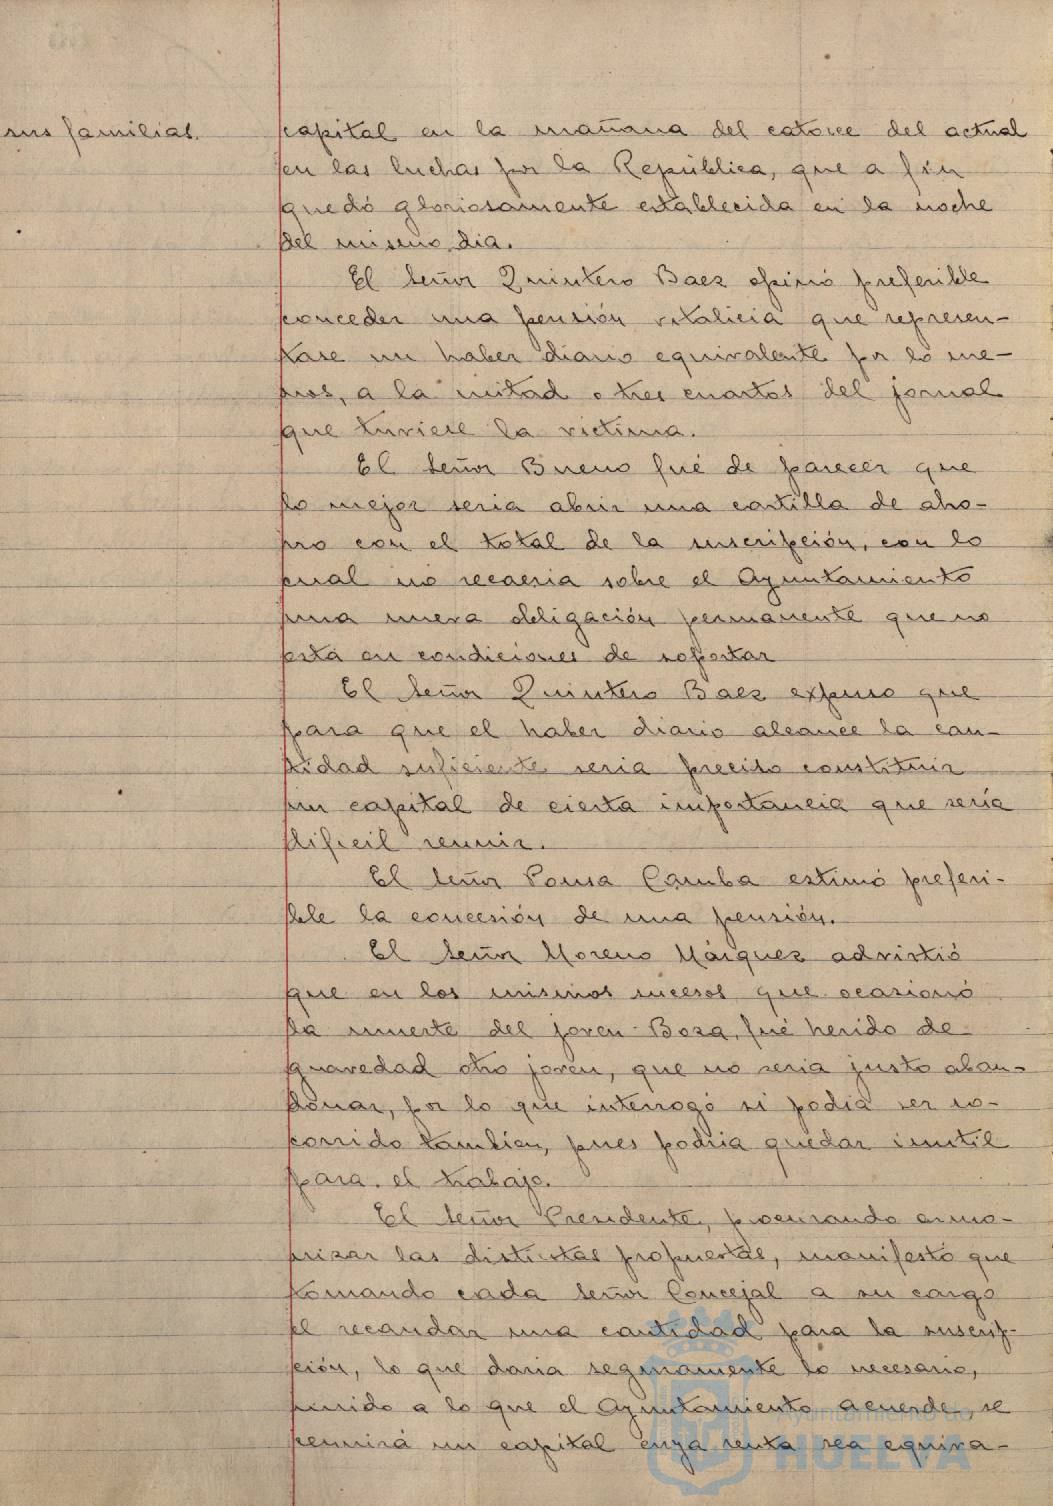 sus familias.
capital en la mañana del catorce del actual
en las luchas por la República, que a fin
quedó gloriosamente establecida en la noche
del mismo dia.
El Señor Quintero Baez opinó preferible
conceder una pensión vitalicia que represen-
tase un haber diario equivalente por lo me-
nos, a la mitad o tres cuartos del jornal
que tuviese la victima.
El Señor Bueno fué de parecer que
lo mejor seria abrir una cartilla de aho-
rro con el total de la suscripción, con lo
cual no recaeria sobre el Ayuntamiento
una nueva obligación permanente que no
está en condiciones de soportar
El Señor Quintero Baez expuso que
para que el haber diario alcance la can-
tidad suficiente seria preciso constituir
un capital de cierta importancia que sería
dificil reunir.
El Señor Pousa Camba estimó preferi-
ble la concesión de una pensión.
El Señor Moreno Márquez advirtió
que en los mismos sucesos que ocasionó
la muerte del joven Boza, fué herido de
gravedad otro joven, que no seria justo aban-
donar, por lo que interrogó si podia ser so-
corrido tambien, pues podria quedar inutil
para el trabajo.
El Señor Presidente, procurando armo-
nizar las distintas propuestas, manifestó que
tomando cada Señor Concejal a su cargo
el recaudar una cantidad para la suscrip-
ción, lo que daria seguramente lo necesario,
unido a lo que el Ayuntamiento acuerde, se
reunirá un capital cuya renta sea equiva-
Ayuntamiento de
HUELVA